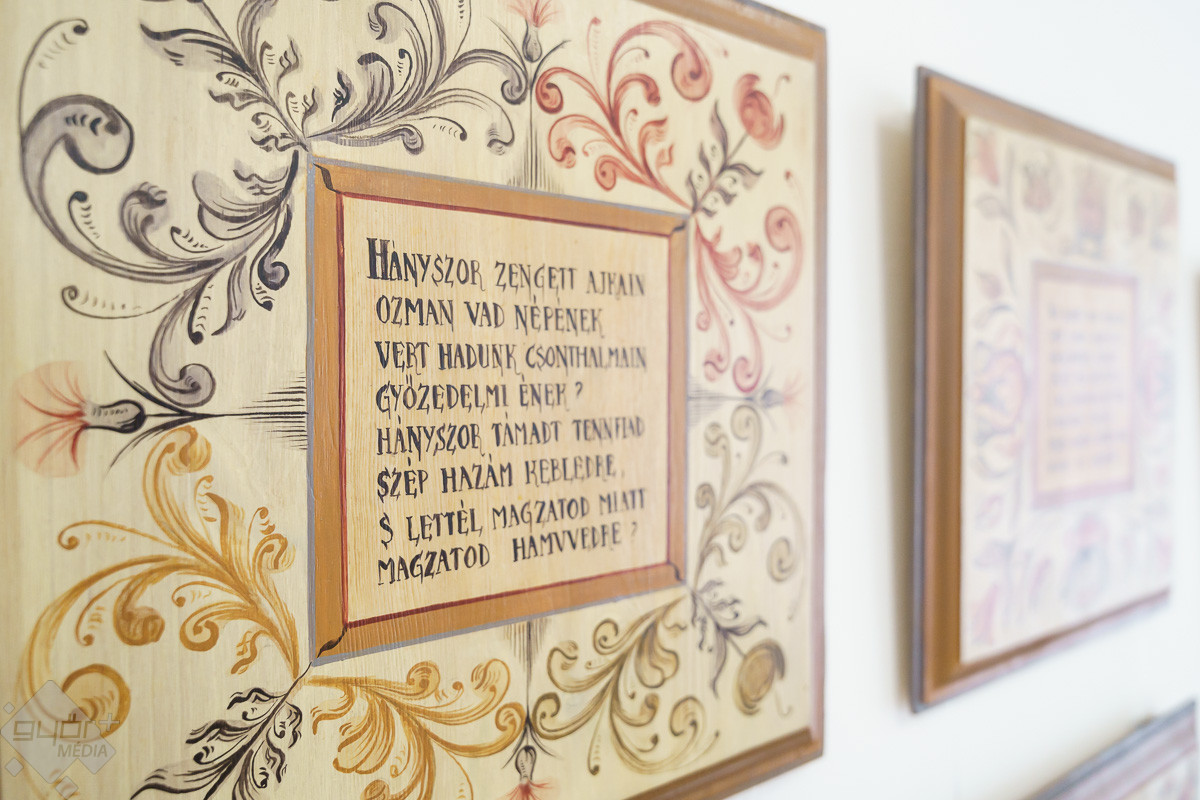 HÁNYSZOR ZENGETT AJKAIN
OZMAN VAD NÉPÉNEK
VERT HADUNK CSONTHALMAIN
GYŐZEDELMI ÉNEK?
HÁNYSZOR TÁMADT TENNFIAD
SZÉP HAZÁM KEBLEDRE,
S LETTÉL MAGZATOD MIATT
MAGZATOD HAMVVEDRE?
győr+
MÉDIA